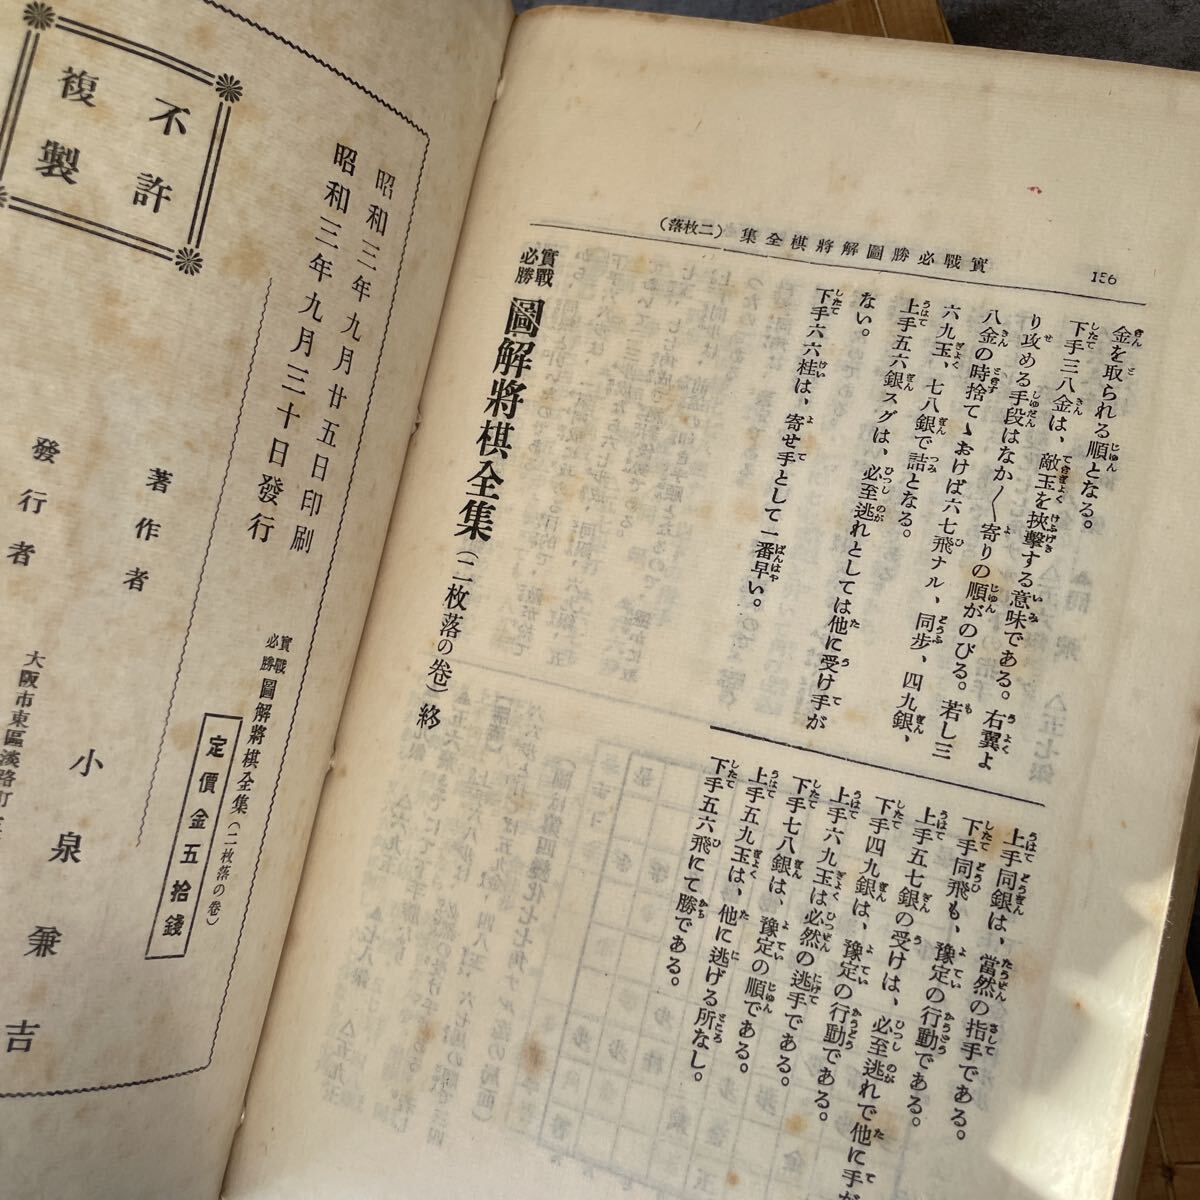 實戰必勝圖解將棋全集（二枚落）
156
金を取られる順となる。
下手三八金は、敵玉を挾擊する意味である。右翼よ
り攻める手段はなか〱寄りの順がのびる。若し三
八金の時捨てゝおけば六七飛ナル、同步、四九銀、
六九玉、七八銀で詰となる。
上手五六銀スグは、必至逃れとしては他に受け手が
ない。
下手六六桂は、寄せ手として一番早い。
上手同銀は、當然の指手である。
下手同飛も、豫定の行動である。
上手五七銀の受けは、必至逃れで他に手が
下手四九銀は、豫定の行動である。
上手六九玉は必然の逃手である。
下手七八銀は、豫定の順である。
上手五九玉は、他に逃げる所なし。
下手五六飛にて勝である。
實戰必勝 圖解將棋全集（二枚落の卷）終
不許複製
昭和三年九月廿五日印刷
昭和三年九月三十日發行
實戰必勝 圖解將棋全集（二枚落の卷）
定價金五拾錢
著作者
發行者
小泉兼吉
大阪市東區淡路町